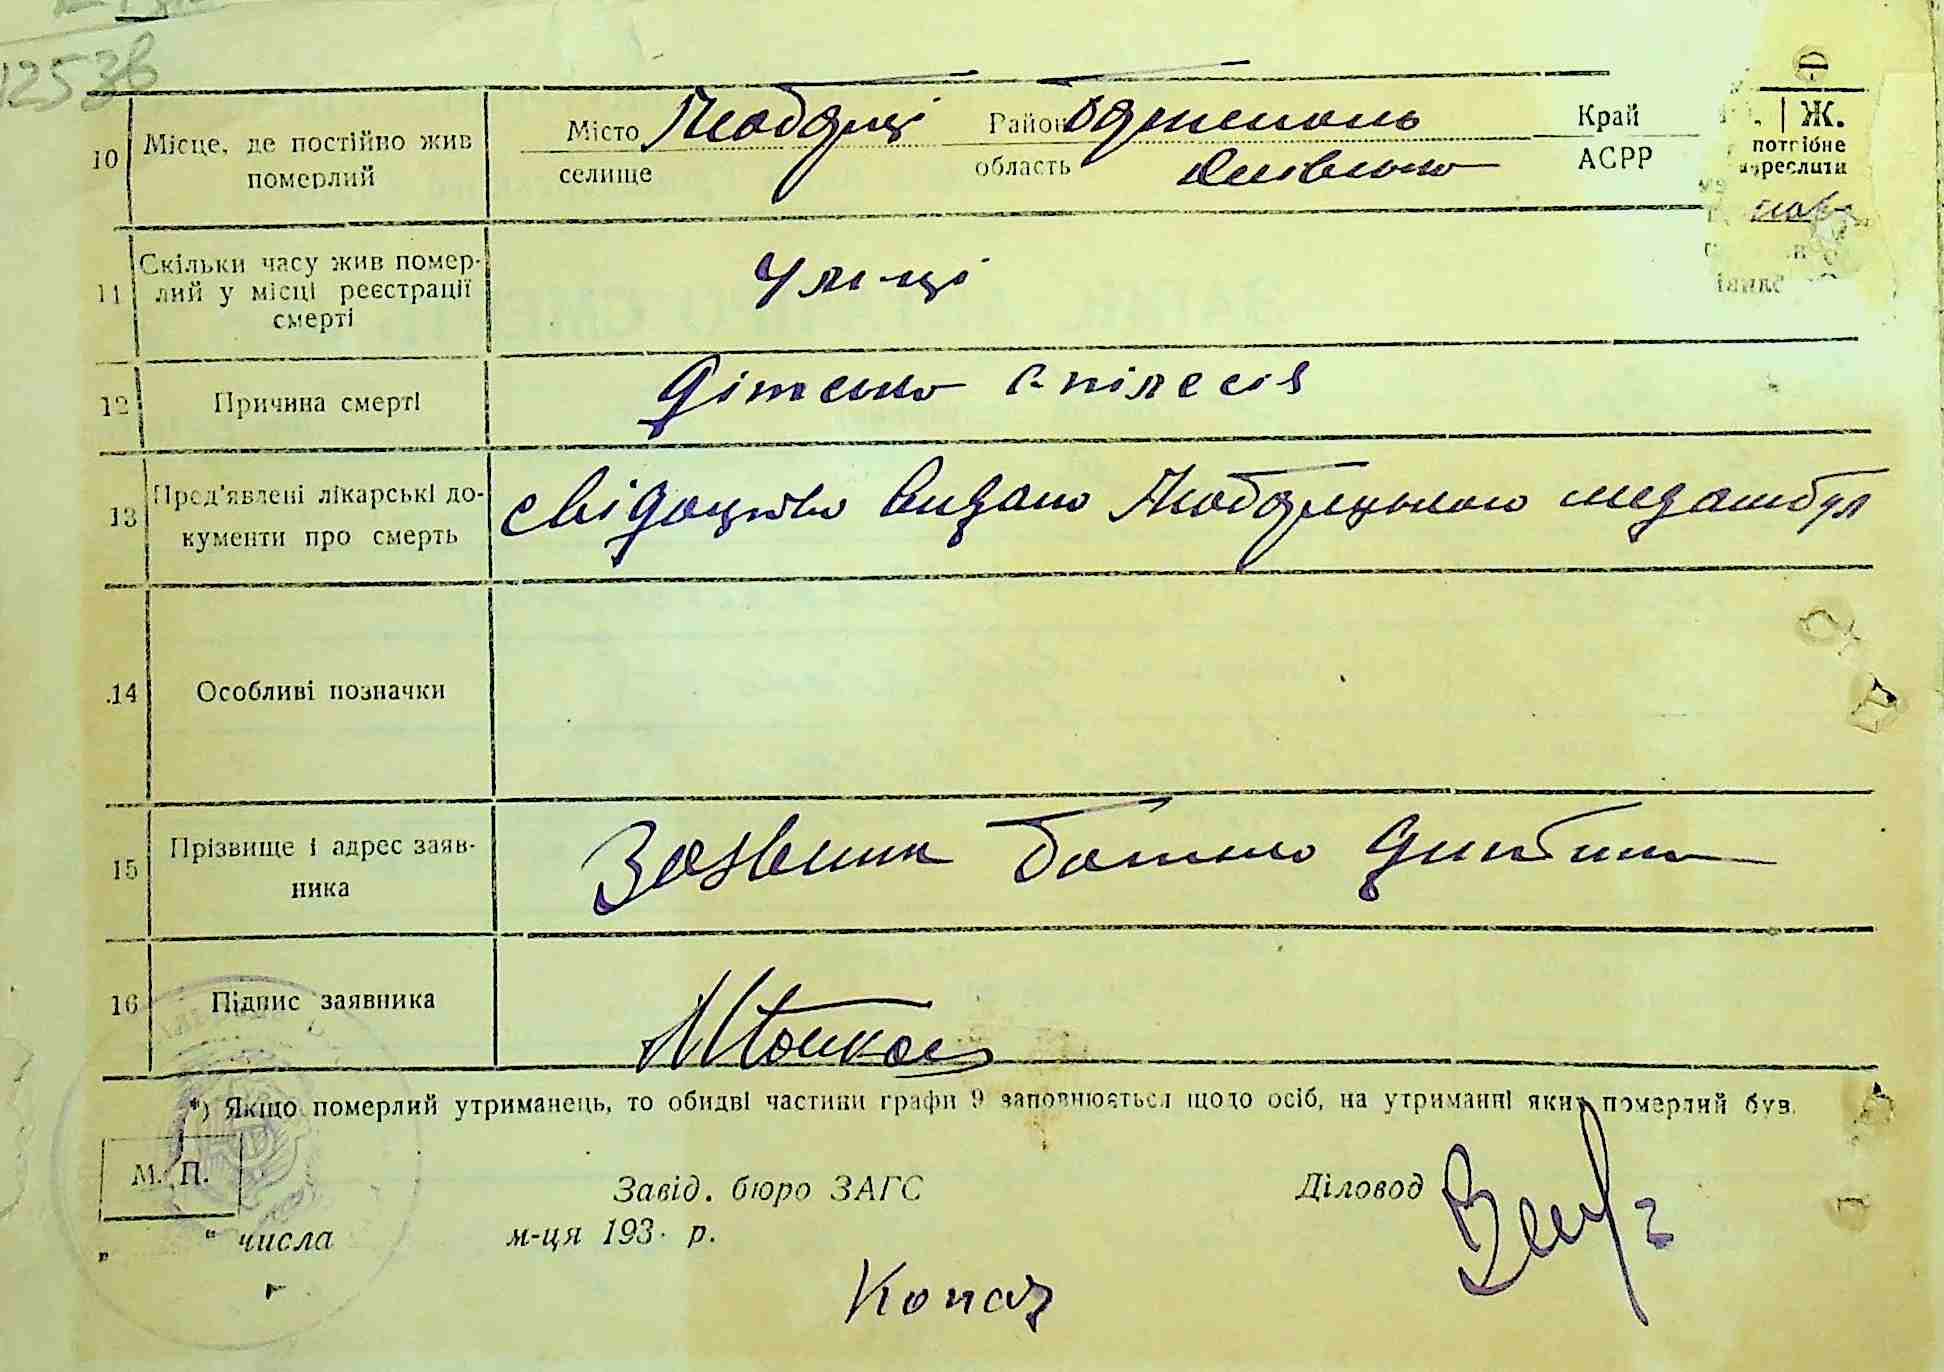 1253в
10 Місце, де постійно жив померлий
Місто Любарці Район Бориспіль Край
селище область Київська АСРР
Ж.
потрібне
11 Скільки часу жив помер-
лий у місці реєстрації
смерті
4 м-ці
12 Причина смерті
Дітська епілесія
13 Пред'явлені лікарські до-
кументи про смерть
свідоцтво видано
14 Особливі позначки
15 Прізвище і адрес заяв-
ника
Заявник батько дитини
16 Підпис заявника
*) Якщо померлий утриманець, то обидві частини графи 9 заповнюється щодо осіб, на утриманні яких померлий був.
М. П.
Завід. бюро ЗАГС Діловод
„ “ числа м-ця 193 р.
Копач